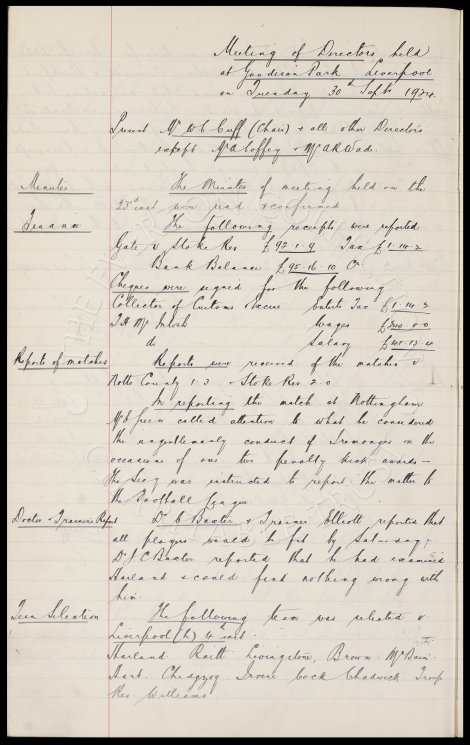 Meeting of Directors held
at Goodison Park, Liverpool
on Tuesday 30th Septr 1924.
Present Mr W C Cuff (Chair) & all other Directors
except Mr A Coffey & Mr A R Wade.
Minutes
The Minutes of meeting held on the
23rd inst were read & confirmed
Finance
The following receipts were reported
Gate v Stoke Res £92.1.9 Tax £1.14.2
Bank Balance £95.16.10
Cheques were signed for the following
Collector of Customs & Excise Enterts Tax £1.14.2
T H McIntosh Wages £200.0.0
do Salary £41.13.4
Reports of matches
Reports were received of the matches v
Notts County 1.3 & Stoke Res 2.0
In reporting the match at Nottingham
Mr Green called attention to what he considered
the ungentlemanly conduct of Iremonger on the
occasions of our two penalty kick awards -
The Secy was instructed to report the matter to
the Football League
Doctor & Trainer's Report
Dr C Baxter & Trainer Elliott reported that
all players would be fit by Saturday,
Dr J C Baxter reported that he had examined
Harland & could find nothing wrong with
him.
Team Selection
The following team was selected v
Liverpool (h) 4th inst.
Harland Raitt Livingston, Brown McBain
Hart Chedgzoy Irvine Cock Chadwick Troup
Res Williams